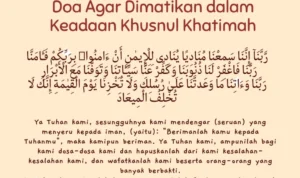 Doa Agar Dimatikan dalam
Keadaan Khusnul Khatimah
رَبَّنَآ اِنَّنَا سَمِعْنَا مُنَادِيًا يُّنَادِيْ لِلْاِيْمَانِ اَنْ اٰمِنُوْا بِرَبِّكُمْ فَاٰمَنَّا
رَبَّنَا فَاغْفِرْ لَنَا ذُنُوْبَنَا وَكَفِّرْ عَنَّا سَيِّاٰتِنَا وَتَوَفَّنَا مَعَ الْاَبْرَارِ
رَبَّنَا وَءَاتِنَا مَا وَعَدتَّنَا عَلَىٰ رُسُلِكَ وَلَا تُخْزِنَا يَوْمَ الْقِيٰمَةِ اِنَّكَ لَا
تُخْلِفُ الْمِيعَادَ
Ya Tuhan kami, sesungguhnya kami mendengar (seruan) yang
menyeru kepada iman, (yaitu): "Berimanlah kamu kepada
Tuhanmu", maka kamipun beriman. Ya Tuhan kami, ampunilah bagi
kami dosa-dosa kami dan hapuskanlah dari kami kesalahan-
kesalahan kami, dan wafatkanlah kami beserta orang-orang yang
banyak berbakti.